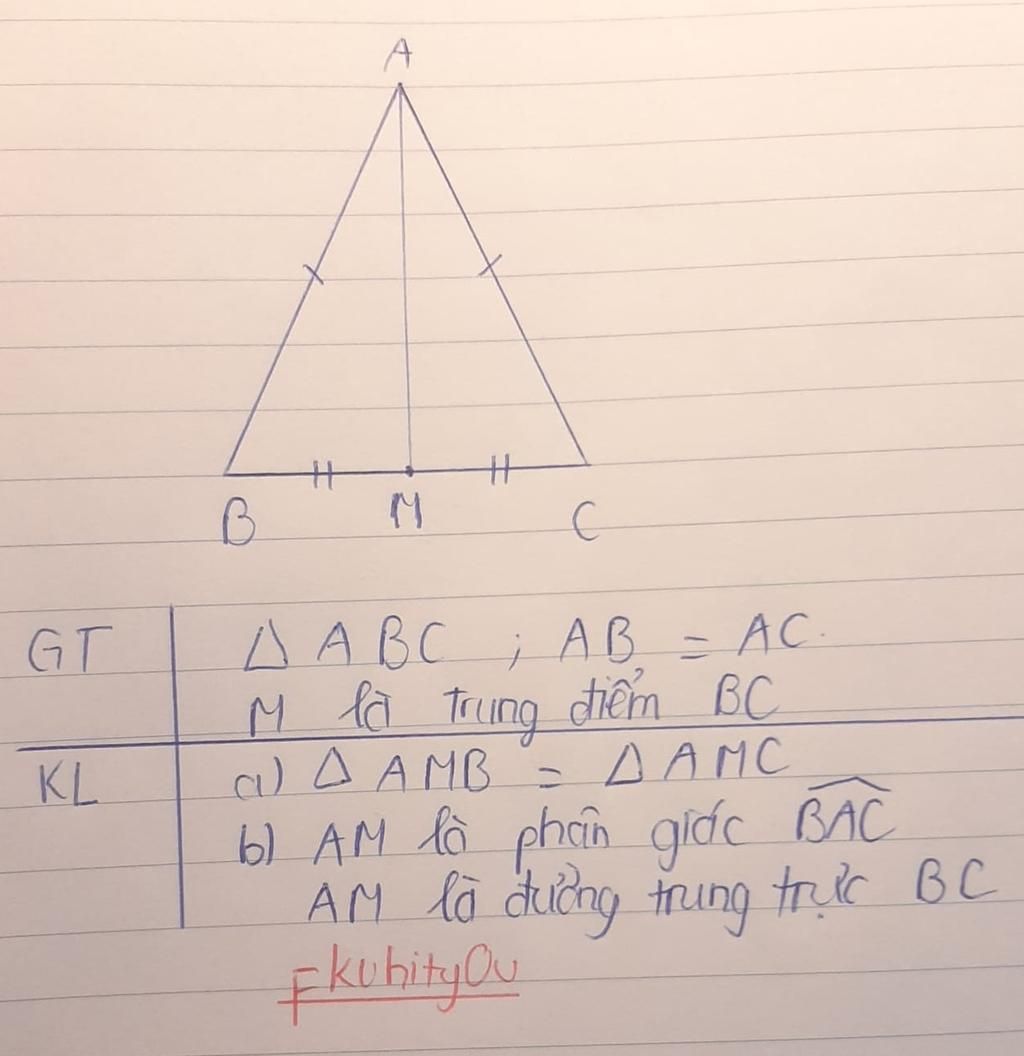 A
B M C
GT Δ ABC ; AB = AC.
M là trung điểm BC
KL a) Δ AMB = Δ AMC
b) AM là phân giác \widehat{BAC}
AM là đường trung trực BC
FkuhityOu